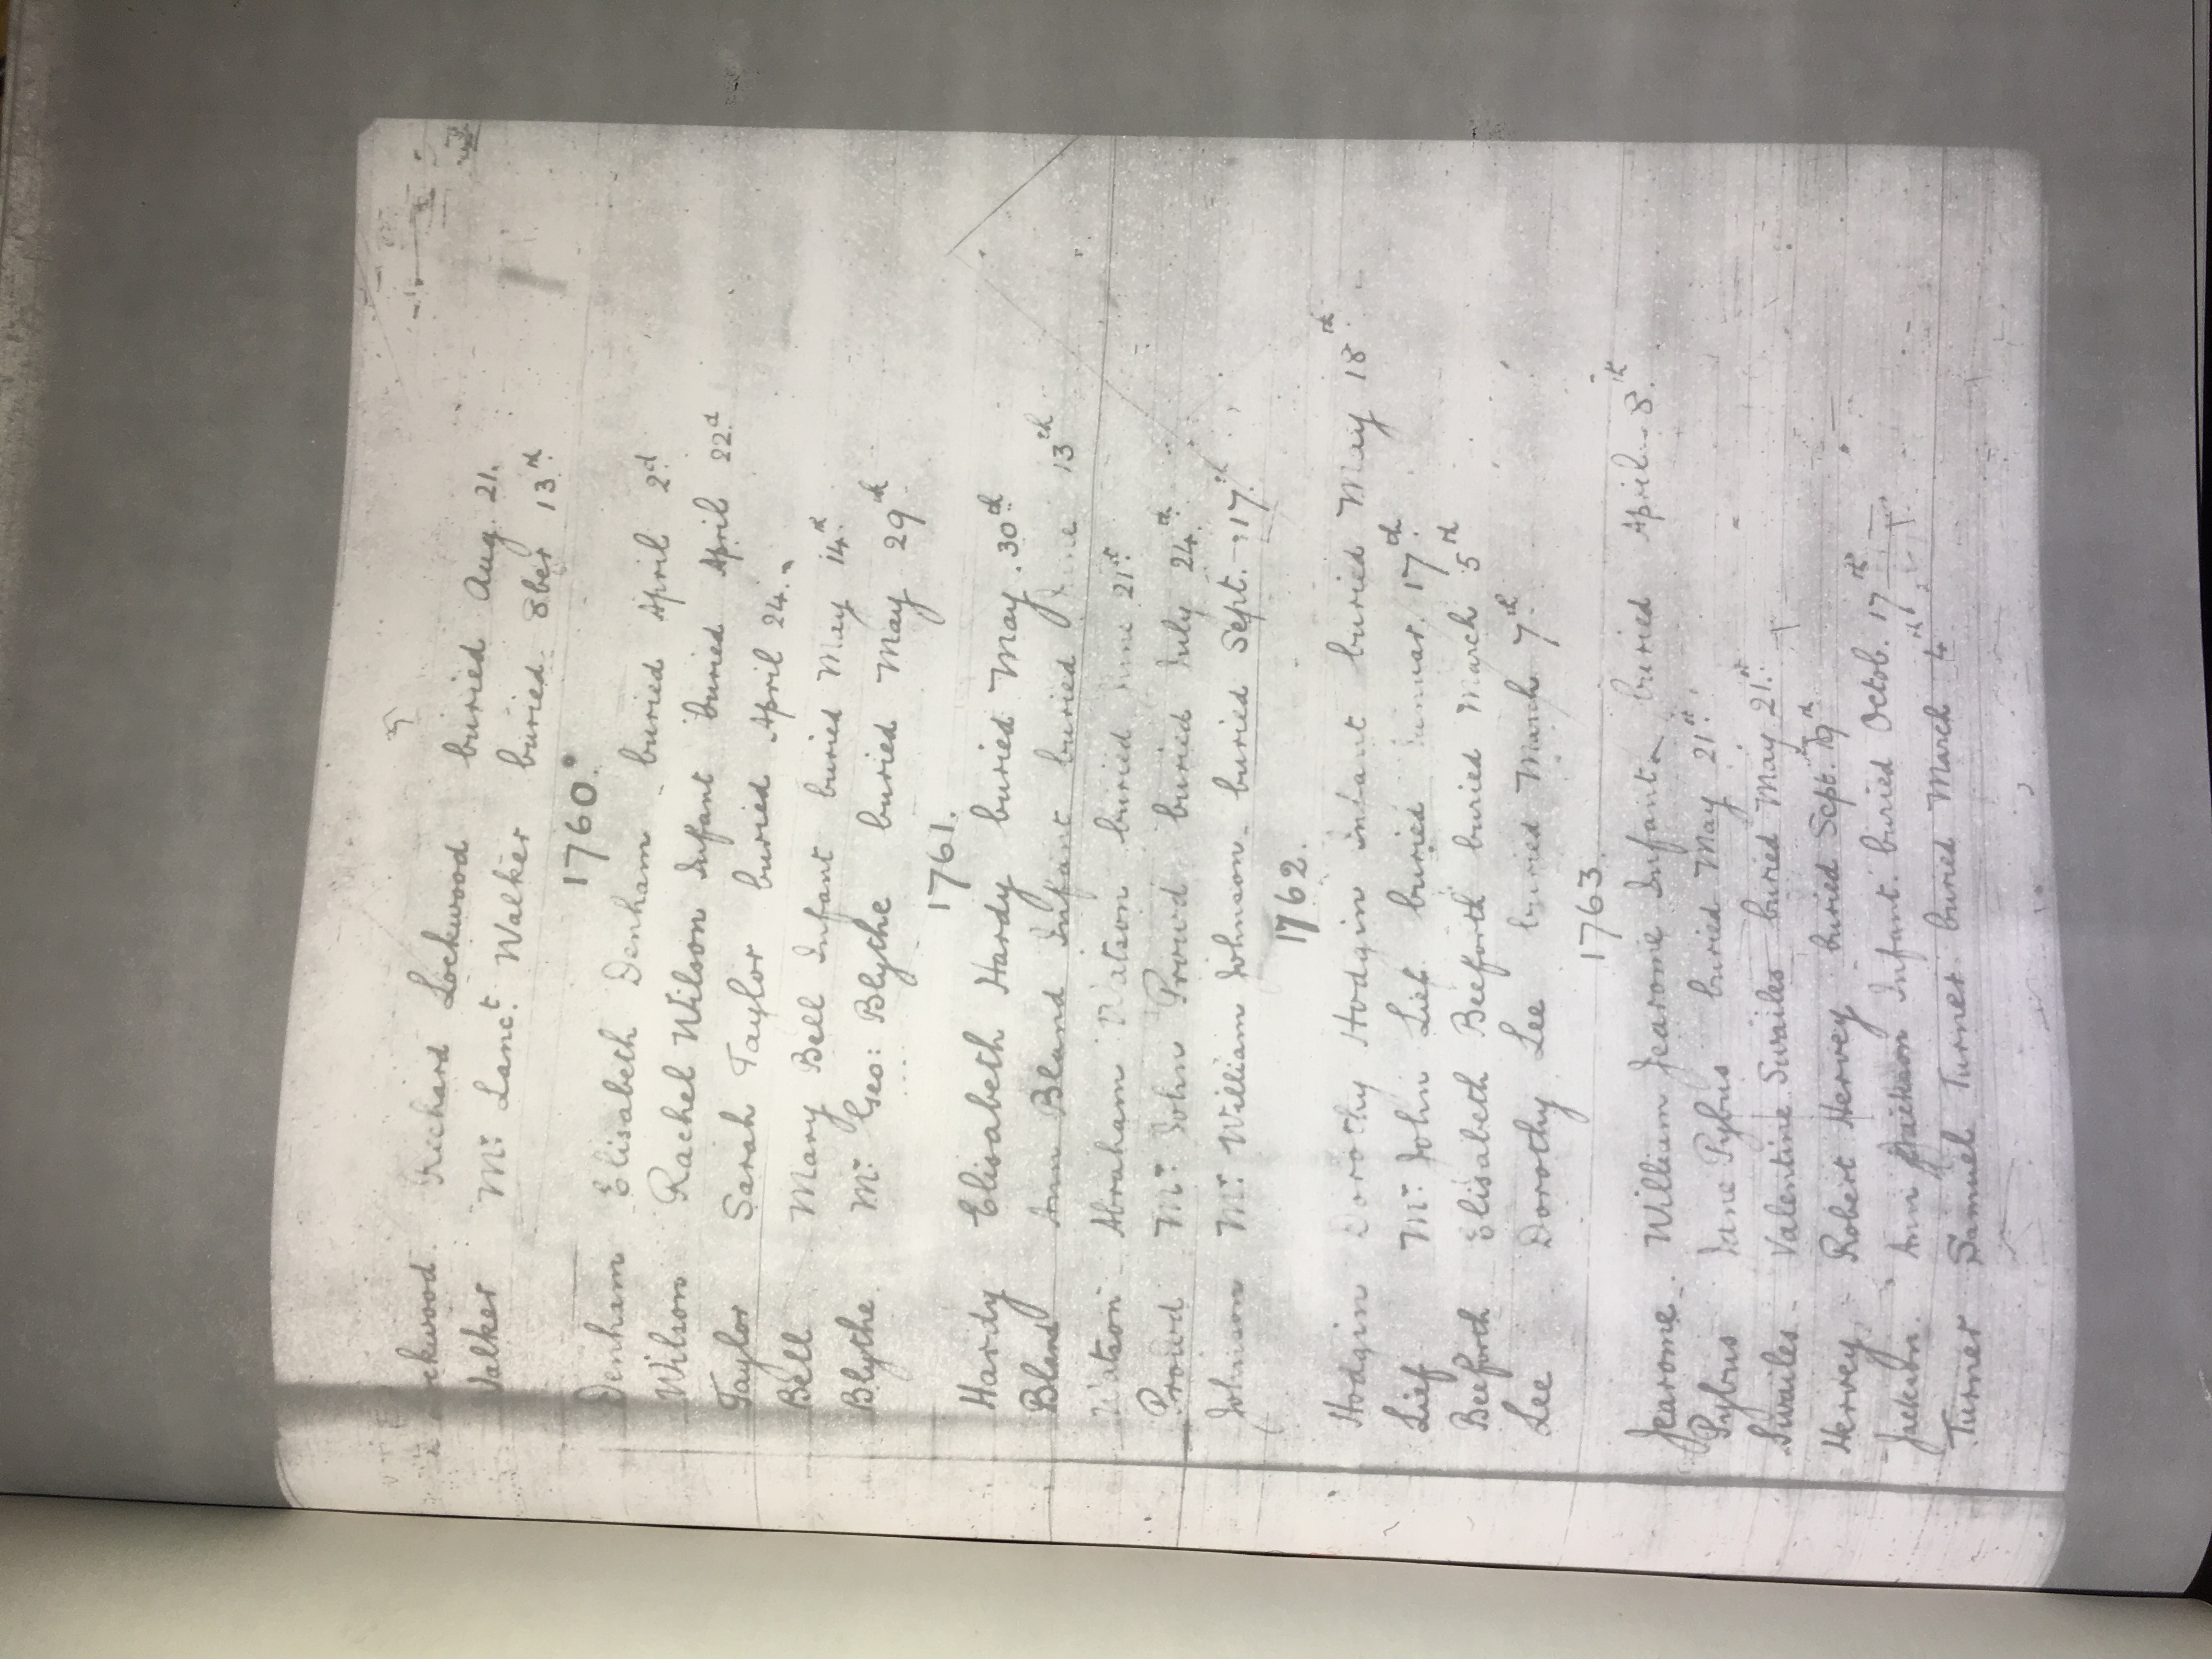 Lockwood Richard Lockwood buried Aug. 21.
Walker Mr. Lanct. Walker buried 8ber 13th
1760.
Denham Elisabeth Denham buried April 2d
Wilson Rachel Wilson Infant buried April 22d
Taylor Sarah Taylor buried April 24.
Bell Mary Bell Infant buried May 14th
Blythe Mr. Geo: Blythe buried May 29th
1761.
Hardy Elisabeth Hardy buried May 30th
Bland Ann Bland Infant buried June 13th
Watson Abraham Watson buried June 21st
Prowd Mr. John Prowd buried July 24th
Johnson Mr. William Johnson buried Sept. 17th
1762.
Hodgin Dorothy Hodgin infant buried May 18th
Lief Mr. John Lief buried Januar. 17th
Beeforth Elisabeth Beeforth buried March 5th
Lee Dorothy Lee buried March 7th
1763.
Jearome William Jearome Infant buried April 8th
Pybus Jane Pybus buried May 21st
Swailes Valentine Swailes buried May 21st
Hervey Robert Hervey buried Sept. 19th
Ann Infant buried Octob. 17th
Turner Samuel Turner buried March 4th